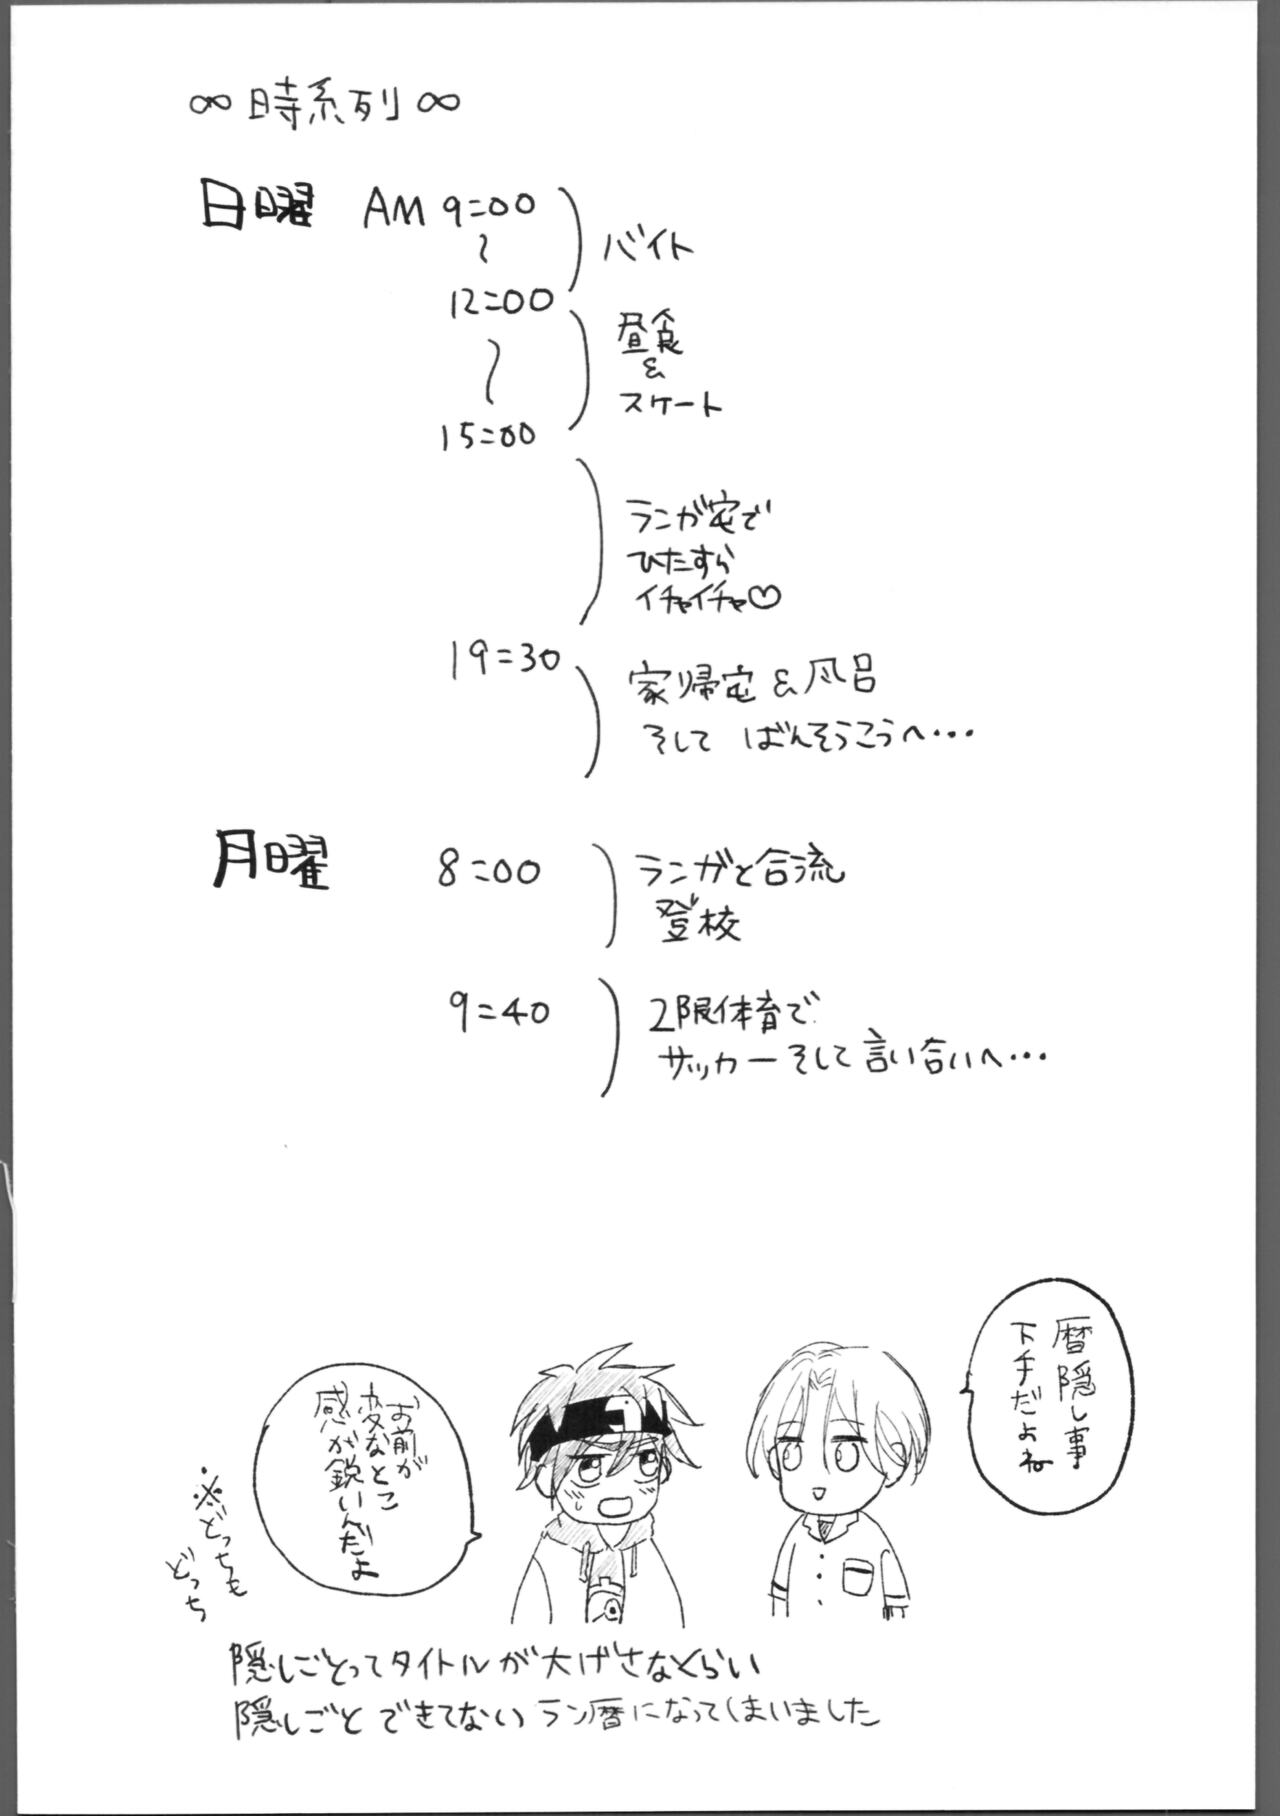 ∞時系列∞
日曜 AM 9:00
〜
バイト
12:00
昼食
&
〜
スケート
15:00
ランガ宅で
ひたすら
イチャイチャ♡
19:30
家帰宅&風呂
そして ばんそうこうへ・・・
月曜 8:00
ランガと合流
登校
9:40
2限体育で
サッカーそして言い合いへ・・・
暦隠し事
下手だよね
お前が
変なとこ
感が鋭いんだよ
※どっちも
どっち
隠しごとってタイトルが大げさなくらい
隠しごとできてないラン暦になってしまいました